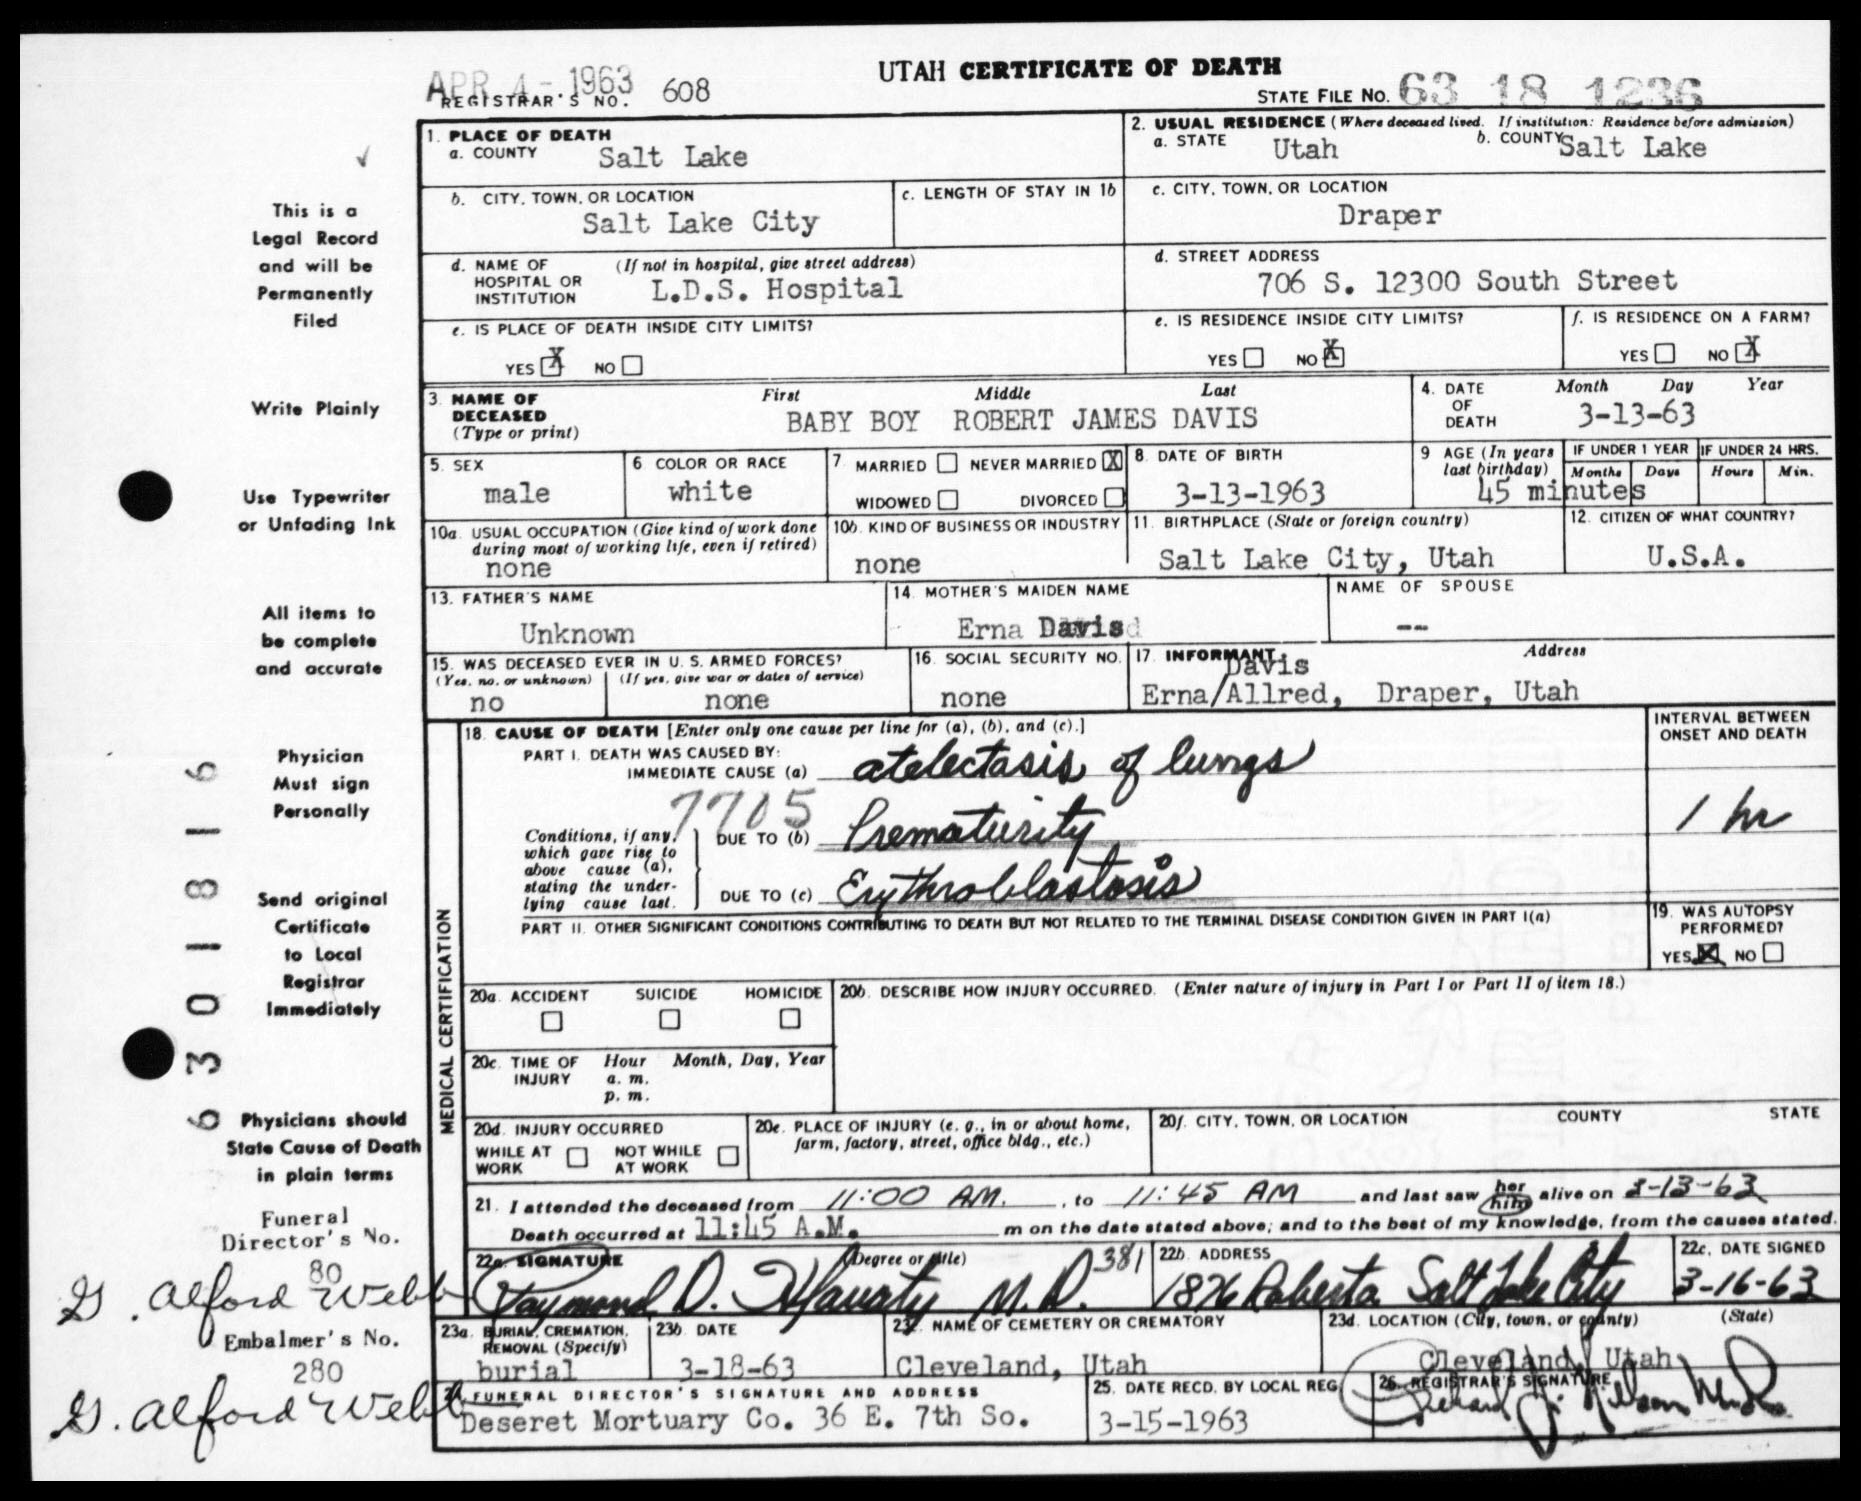 UTAH CERTIFICATE OF DEATH
APR 4 - 1963
REGISTRAR'S NO. 608
STATE FILE NO. 63 18 1236
1. PLACE OF DEATH
a. COUNTY Salt Lake
2. USUAL RESIDENCE (Where deceased lived. If institution: Residence before admission)
a. STATE Utah b. COUNTY Salt Lake
b. CITY, TOWN, OR LOCATION
Salt Lake City
c. LENGTH OF STAY IN 1b
c. CITY, TOWN, OR LOCATION
Draper
d. NAME OF HOSPITAL OR INSTITUTION (If not in hospital, give street address)
L.D.S. Hospital
d. STREET ADDRESS
706 S. 12300 South Street
e. IS PLACE OF DEATH INSIDE CITY LIMITS?
YES X NO
e. IS RESIDENCE INSIDE CITY LIMITS?
YES NO X
f. IS RESIDENCE ON A FARM?
YES NO X
3. NAME OF DECEASED (Type or print)
First Middle Last
BABY BOY ROBERT JAMES DAVIS
4. DATE OF DEATH
Month Day Year
3-13-63
5. SEX
male
6 COLOR OR RACE
white
7 MARRIED NEVER MARRIED X
WIDOWED DIVORCED
8. DATE OF BIRTH
3-13-1963
9 AGE (In years last birthday)
IF UNDER 1 YEAR
Months Days
IF UNDER 24 HRS.
Hours Min.
45 minutes
10a. USUAL OCCUPATION (Give kind of work done during most of working life, even if retired)
none
10b. KIND OF BUSINESS OR INDUSTRY
none
11. BIRTHPLACE (State or foreign country)
Salt Lake City, Utah
12. CITIZEN OF WHAT COUNTRY?
U.S.A.
13. FATHER'S NAME
Unknown
14. MOTHER'S MAIDEN NAME
Erna Davis
NAME OF SPOUSE
--
15. WAS DECEASED EVER IN U. S. ARMED FORCES?
(Yes, no, or unknown) (If yes, give war or dates of service)
no none
16. SOCIAL SECURITY NO.
none
17. INFORMANT Address
Davis
Erna/Allred, Draper, Utah
MEDICAL CERTIFICATION
18. CAUSE OF DEATH [Enter only one cause per line for (a), (b), and (c).]
INTERVAL BETWEEN ONSET AND DEATH
PART I. DEATH WAS CAUSED BY:
IMMEDIATE CAUSE (a) atelectasis of lungs
7705
Conditions, if any, which gave rise to above cause (a), stating the underlying cause last.
DUE TO (b) Prematurity
1 hr
DUE TO (c) Erythroblastosis
PART II. OTHER SIGNIFICANT CONDITIONS CONTRIBUTING TO DEATH BUT NOT RELATED TO THE TERMINAL DISEASE CONDITION GIVEN IN PART I(a)
19. WAS AUTOPSY PERFORMED?
YES X NO
20a. ACCIDENT SUICIDE HOMICIDE
20b. DESCRIBE HOW INJURY OCCURRED. (Enter nature of injury in Part I or Part II of item 18.)
20c. TIME OF INJURY Hour Month, Day, Year
a. m.
p. m.
20d. INJURY OCCURRED
WHILE AT WORK NOT WHILE AT WORK
20e. PLACE OF INJURY (e. g., in or about home, farm, factory, street, office bldg., etc.)
20f. CITY, TOWN, OR LOCATION COUNTY STATE
21. I attended the deceased from 11:00 AM. , to 11:45 AM and last saw her him alive on 3-13-63
Death occurred at 11:45 A.M. m on the date stated above; and to the best of my knowledge, from the causes stated.
22a. SIGNATURE (Degree or title)
Raymond D. M.D. 381
22b. ADDRESS
1876 Roberta Salt Lake City
22c. DATE SIGNED
3-16-63
23a. BURIAL, CREMATION, REMOVAL (Specify)
burial
23b. DATE
3-18-63
23c. NAME OF CEMETERY OR CREMATORY
Cleveland, Utah
23d. LOCATION (City, town, or county) (State)
Cleveland, Utah
24. FUNERAL DIRECTOR'S SIGNATURE AND ADDRESS
Deseret Mortuary Co. 36 E. 7th So.
25. DATE RECD. BY LOCAL REG.
3-15-1963
26. REGISTRAR'S SIGNATURE
This is a
Legal Record
and will be
Permanently
Filed
Write Plainly
Use Typewriter
or Unfading Ink
All items to
be complete
and accurate
Physician
Must sign
Personally
Send original
Certificate
to Local
Registrar
Immediately
Physicians should
State Cause of Death
in plain terms
6 3 0 1 8 1 6
Funeral
Director's No.
80
G. Alford Webb
Embalmer's No.
280
G. Alford Webb